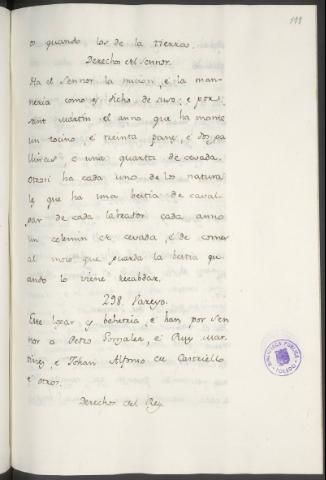 198
o quando los de la tierra.
Derechos del Sennor.
Ha el Sennor la nucion, e la man-
neria como es dicho de suso, e por
sant Martin el anno que ha monte
un tocino, e treinta panes, e dos ga
llinas e una quarta de cevada.
Otrosi ha cada uno de los natura
les que ha una bestia de caval
gar de cada labrador cada anno
un celemin de cevada, e de comer
al mozo que guarda la bestia qu
ando lo viene recabdar.
298. Pareyo.
Este logar es behetria, e han por Sen
nor a Pero Gonzalez, e Ruy Mar
tinez, e Johan Alfonso de Castriello
e otros.
Derechos del Rey
BIBLIOTECA PUBLICA
TOLEDO